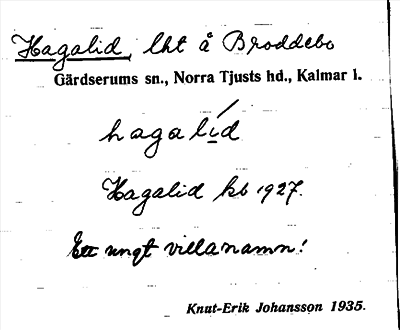 Hagalid, lht å Broddebo
Gärdserums sn., Norra Tjusts hd., Kalmar l.
hagalíd
Hagalid kb 1927.
Ett ungt villanamn!
Knut-Erik Johansson 1935.